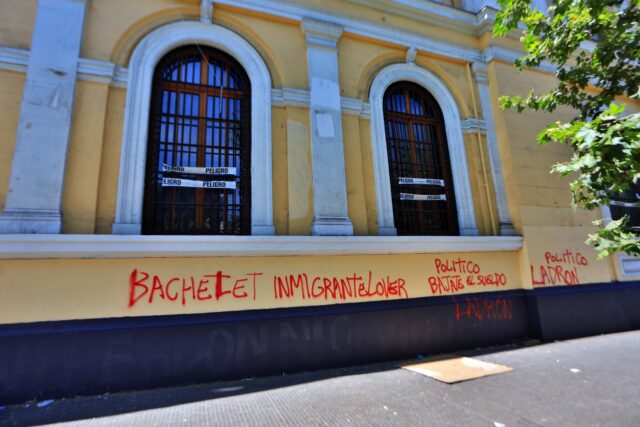 PELIGRO
LIGRO PELIGRO
PELIGRO
PELIGRO
BACHELET INMIGRANTE LOVER
POLITICO
BAJATE EL SUELDO
LADRON
POLITICO
LADRON